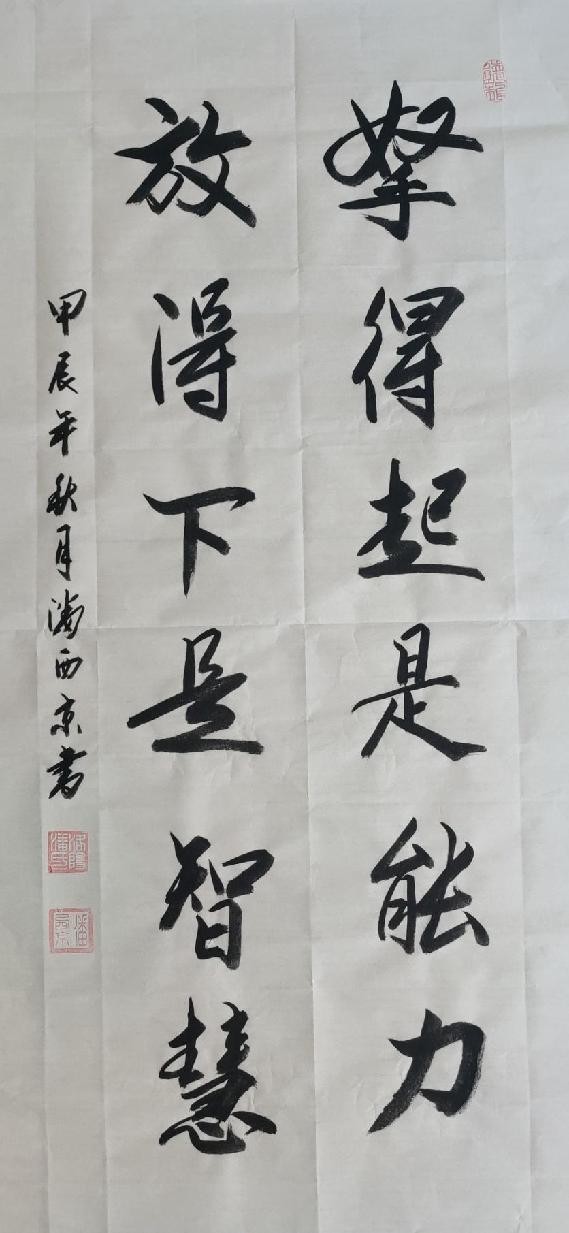 拏得起是能力
放得下是智慧
甲辰年秋月潘西京書